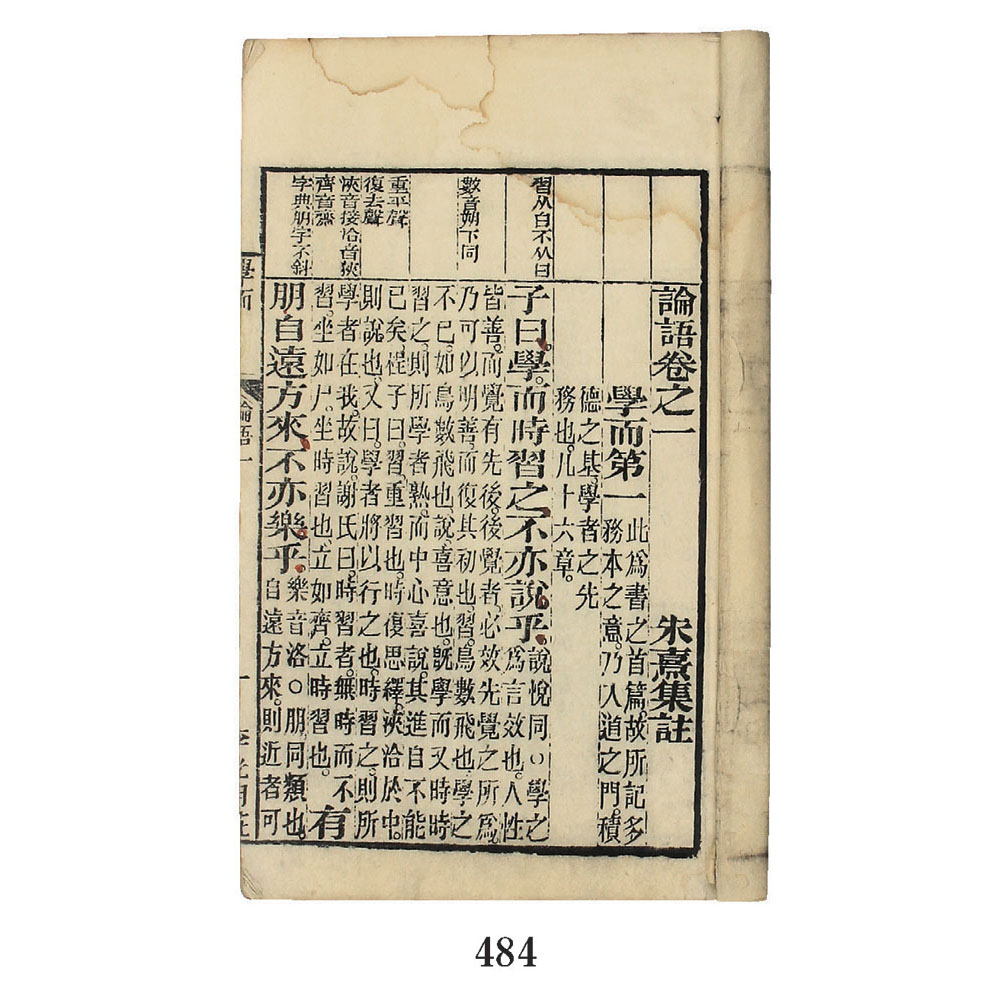 習从白不从日
數音朔下同
重平聲
復去聲
浹音接洽音狹
齊音齋
字典朋字不斜
論語卷之一　朱熹集註
學而第一
此爲書之首篇。故所記多
務本之意。乃入道之門。積
德之基。學者之先
務也。凡十六章。
子曰。學而時習之。不亦說乎。
說悅同○學之
爲言效也。人性
皆善。而覺有先後。後覺者。必效先覺之所爲。
乃可以明善而復其初也。習。鳥數飛也。學之
不已。如鳥數飛也。說。喜意也。旣學而又時時
習之。則所學者熟。而中心喜說。其進自不能
已矣。程子曰。習。重習也。時復思繹。浹洽於中。
則說也。又曰。學者將以行之也。時習之。則所
學者在我。故說。謝氏曰。時習者。無時而不
習。坐如尸。坐時習也。立如齊。立時習也。
有
朋自遠方來。不亦樂乎。
樂音洛○朋同類也。
自遠方來。則近者可
學而
論語一
一
李光明莊
484